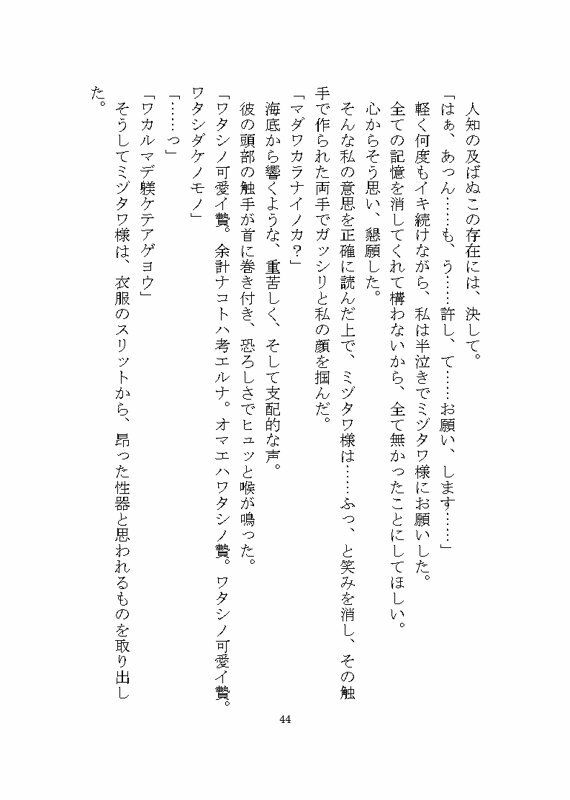 人知の及ばぬこの存在には、決して。
「はぁ、あっん……も、う……許し、て……お願い、します……」
軽く何度もイキ続けながら、私は半泣きでミヅタワ様にお願いした。
全ての記憶を消してくれて構わないから、全て無かったことにしてほしい。
心からそう思い、懇願した。
そんな私の意思を正確に読んだ上で、ミヅタワ様は……ふっ、と笑みを消し、その触
手で作られた両手でガッシリと私の顔を掴んだ。
「マダワカラナイノカ？」
海底から響くような、重苦しく、そして支配的な声。
彼の頭部の触手が首に巻き付き、恐ろしさでヒュッと喉が鳴った。
「ワタシノ可愛イ贄。余計ナコトハ考エルナ。オマエハワタシノ贄。ワタシノ可愛イ贄。
ワタシダケノモノ」
「……っ」
「ワカルマデ躾ケテアゲヨウ」
そうしてミヅタワ様は、衣服のスリットから、昂った性器と思われるものを取り出し
た。
44